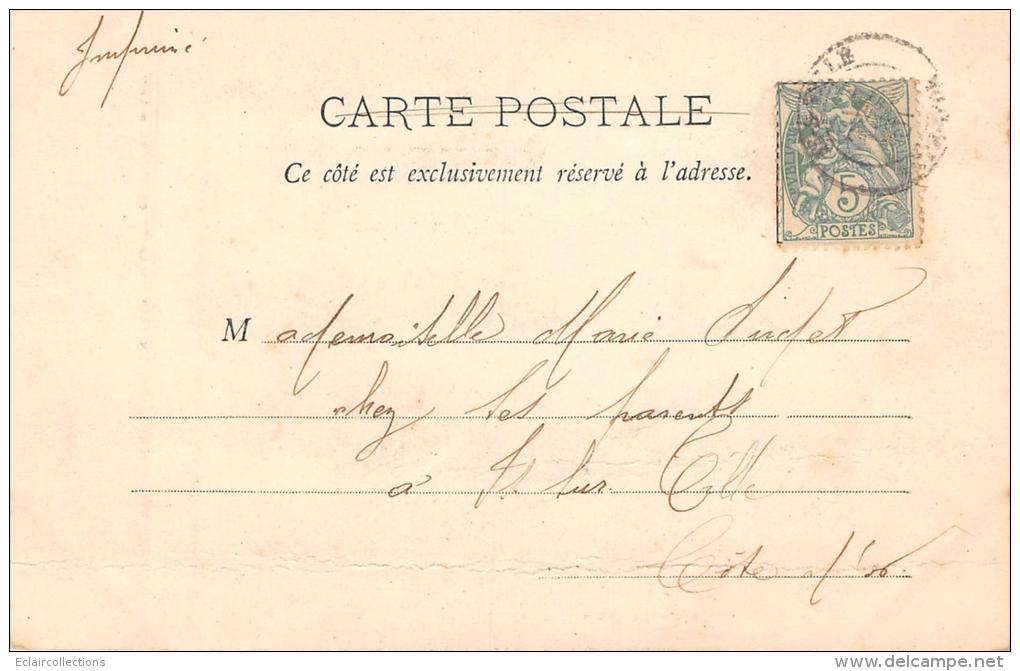 Imprimé
CARTE POSTALE
Ce côté est exclusivement réservé à l'adresse.
5
POSTES
Mademoiselle Marie
chez ses parents
à Is sur Tille
Côte d'or.
Eclaircollections
www.delcampe.net